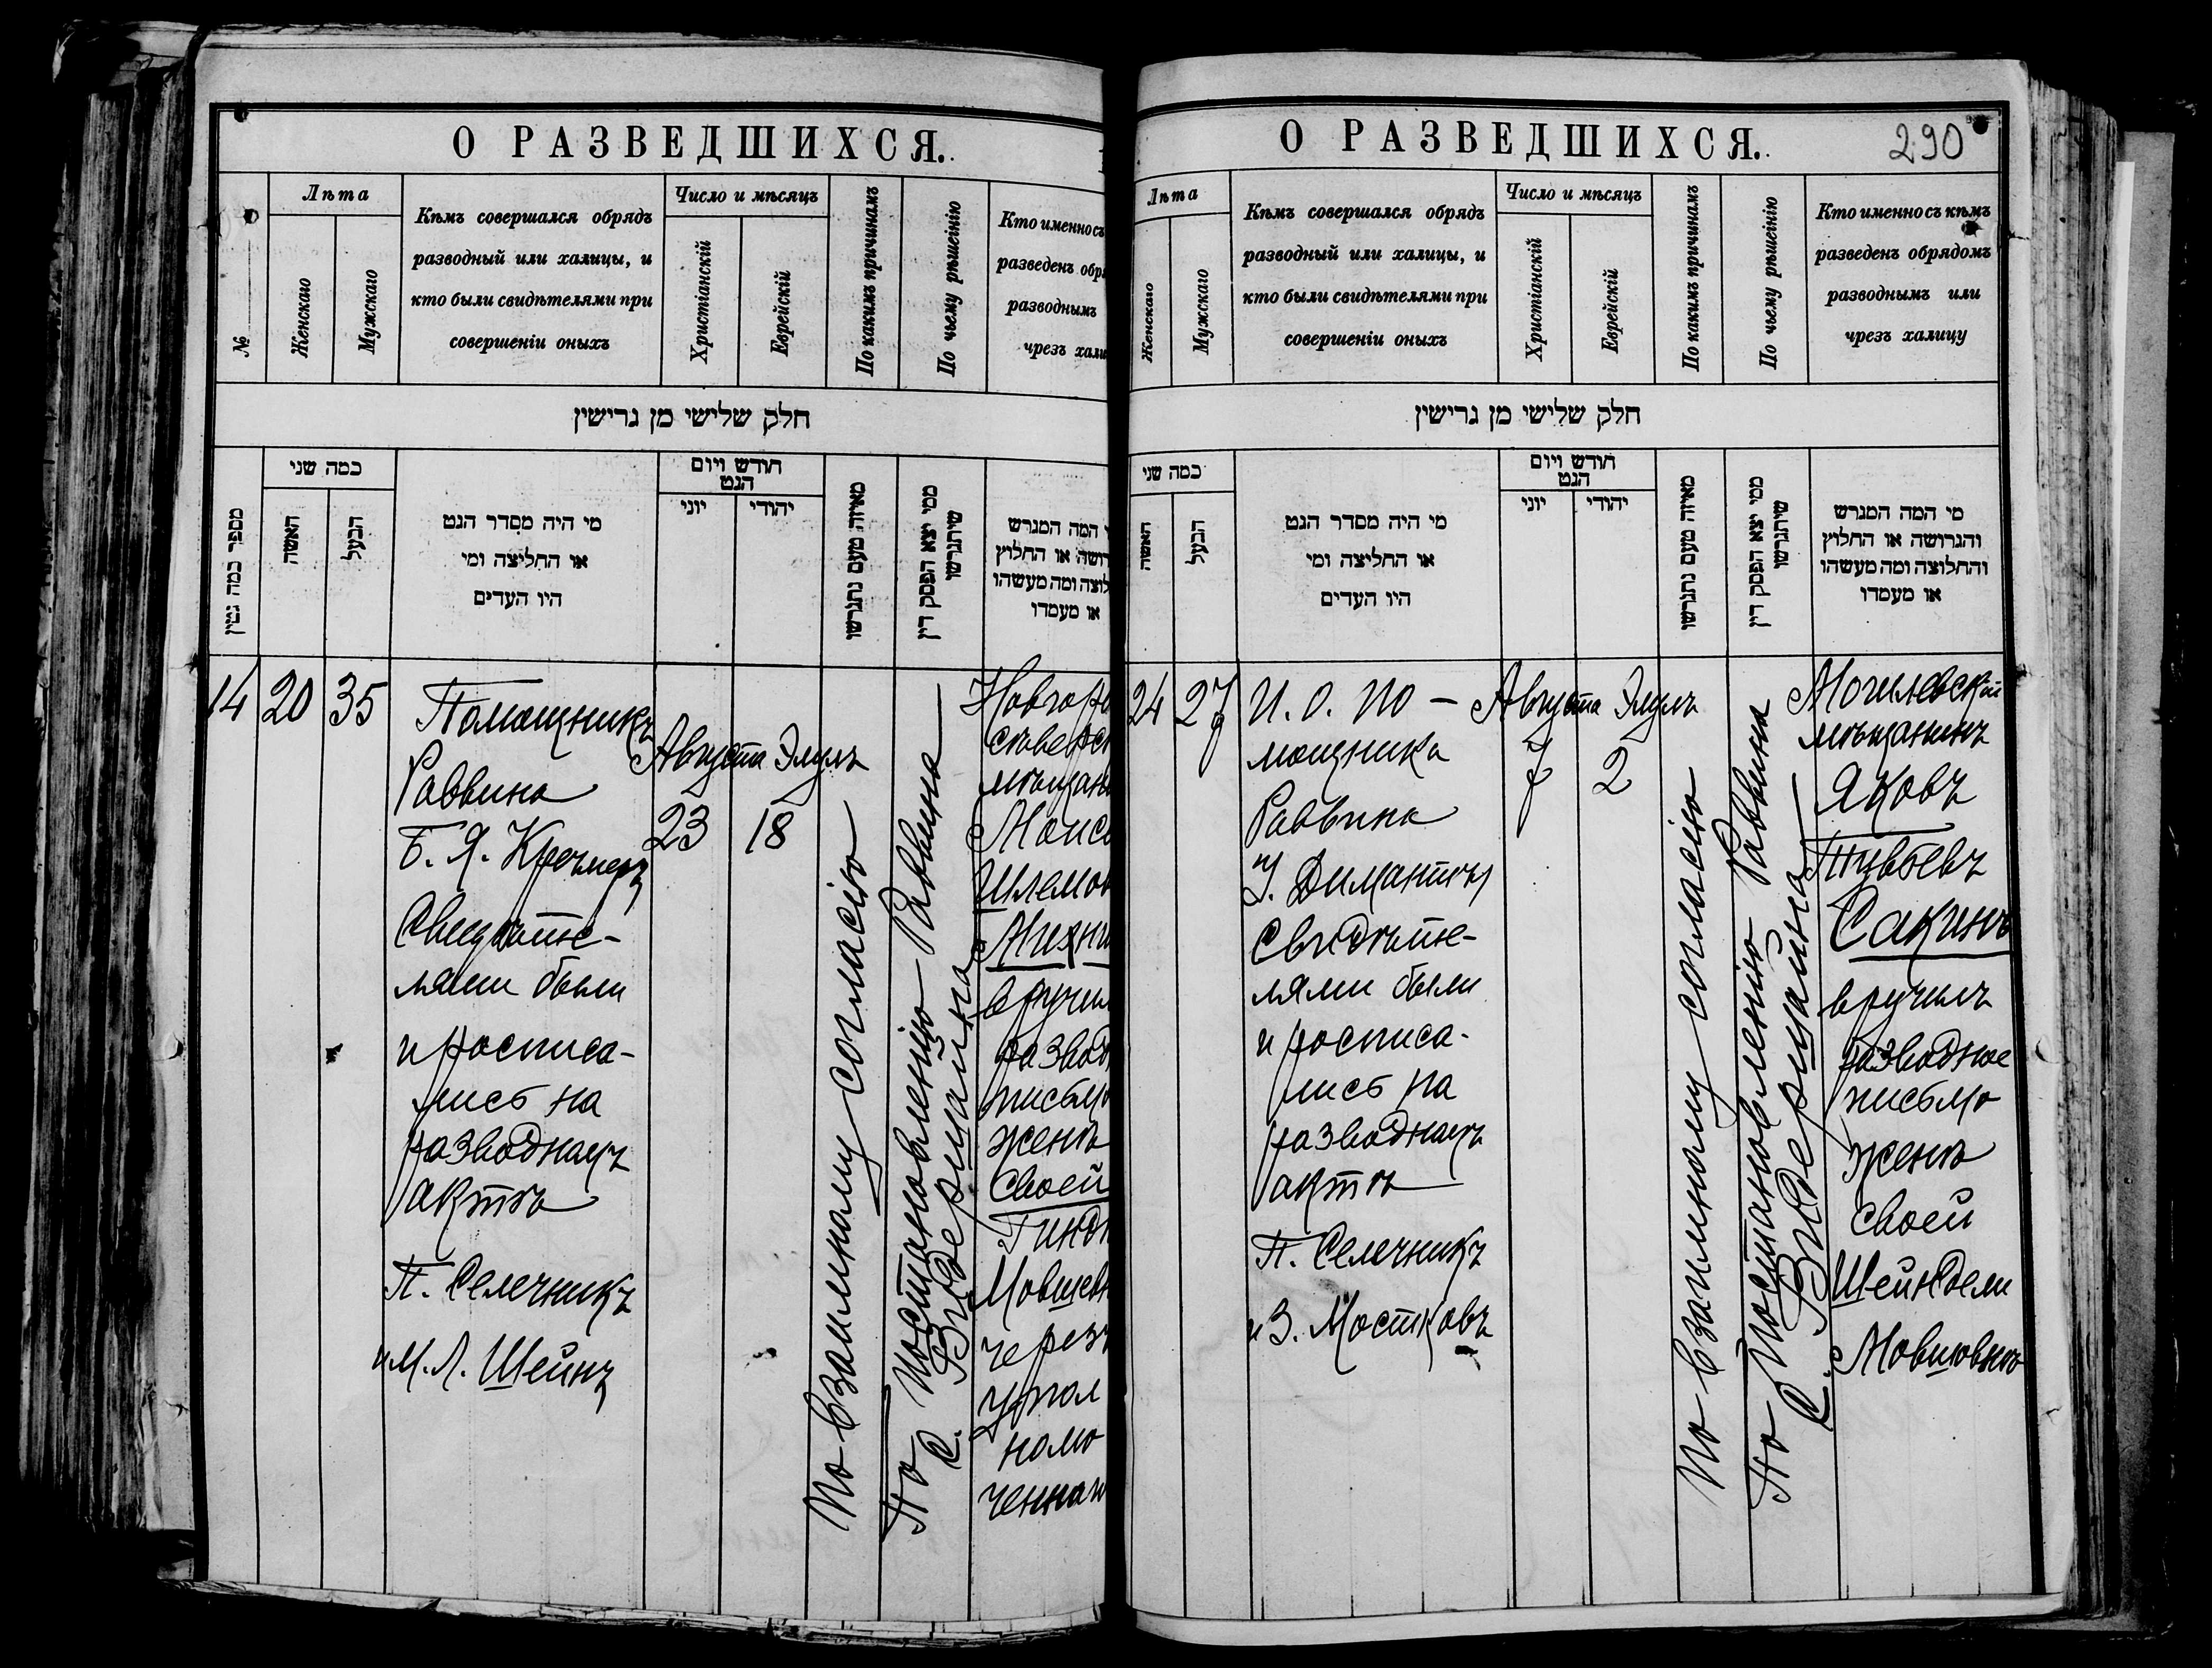 О РАЗВЕДШИХСЯ.
№
Лѣта
Женскаго
Мужскаго
Кѣмъ совершался обрядъ
разводный или халицы, и
кто были свидѣтелями при
совершеніи оныхъ
Число и мѣсяцъ
Христіанскій
Еврейскій
По какимъ причинамъ
По чьему рѣшенію
Кто именно съ
разведенъ обр
разводнымъ
чрезъ хали
חלק שלישי מן גרישין
מספר כמה גטין
כמה שני
האשה
הבעל
מי היה מסדר הגט
או החליצה ומי
היו העדים
חודש ויום
הגט
יוני
יהודי
מאיזה טעם נתגרשו
ממי יצא הפסק דין
שיתגרשו
י המה המגרש
רושה או החלוץ
לוצה ומה מעשהו
או מעמדו
14
20
35
Помощникъ
Раввина
Б. Я. Кречмеръ
Свидѣте-
лями были
и росписа-
лись на
разводномъ
актѣ
П. Селечникъ
и М. Л. Шейнъ
Августа
23
Элулъ
18
По взаимному согласію
По постановленію Раввина
С. Видершайна
Новгоро
сѣверск
мѣщани
Моисе
Шлемов
Михни
вручил
развод
письмо
женѣ
своей
Гинд
Мовшевн
черезъ
упол
номо
ченнаг
О РАЗВЕДШИХСЯ.
290
Лѣта
Женскаго
Мужскаго
Кѣмъ совершался обрядъ
разводный или халицы, и
кто были свидѣтелями при
совершеніи оныхъ
Число и мѣсяцъ
Христіанскій
Еврейскій
По какимъ причинамъ
По чьему рѣшенію
Кто именно съ кѣмъ
разведенъ обрядомъ
разводнымъ или
чрезъ халицу
חלק שלישי מן גרישין
כמה שני
האשה
הבעל
מי היה מסדר הגט
או החליצה ומי
היו העדים
חודש ויום
הגט
יוני
יהודי
מאיזה טעם נתגרשו
ממי יצא הפסק דין
שיתגרשו
מי המה המגרש
והגרושה או החלוץ
והחלוצה ומה מעשהו
או מעמדו
24
27
И. О. По-
мощника
Раввина
У. Димантъ
Свидѣте-
лями были
и росписа-
лись на
разводномъ
актѣ
П. Селечникъ
и З. Мостковъ
Августа
7
Элулъ
2
По взаимному согласію
По постановленію Раввина
С. Видершайна
Могилевскій
мѣщанинъ
Яковъ
Тувьевъ
Сакинъ
вручилъ
разводное
письмо
женѣ
своей
Шейндели
Мовшовнѣ